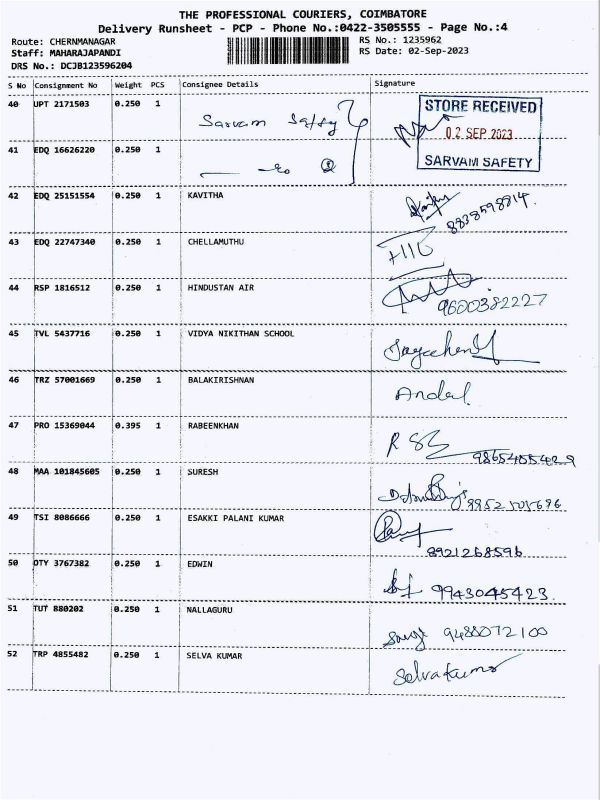 THE PROFESSIONAL COURIERS, COIMBATORE
Delivery Runsheet - PCP - Phone No.:0422-3505555 - Page No.:4
Route: CHERNMANAGAR RS No.: 1235962
Staff: MAHARAJAPANDI RS Date: 02-Sep-2023
DRS No.: DCJB123596204
S No Consignment No Weight PCS Consignee Details Signature
40 UPT 2171503 0.250 1 Sarvam Safty STORE RECEIVED
02 SEP 2023
41 EDQ 16626220 0.250 1 SARVAM SAFETY
42 EDQ 25151554 0.250 1 KAVITHA
8838598814.
43 EDQ 22747340 0.250 1 CHELLAMUTHU
44 RSP 1816512 0.250 1 HINDUSTAN AIR
9600382227
45 TVL 5437716 0.250 1 VIDYA NIKITHAN SCHOOL
46 TRZ 57001669 0.250 1 BALAKIRISHNAN Andal
47 PRO 15369044 0.395 1 RABEENKHAN
48 MAA 101845605 0.250 1 SURESH
49 TSI 8086666 0.250 1 ESAKKI PALANI KUMAR
8921268596
50 OTY 3767382 0.250 1 EDWIN
9943045423.
51 TUT 880202 0.250 1 NALLAGURU
9488072100
52 TRP 4855482 0.250 1 SELVA KUMAR
Selvakumar